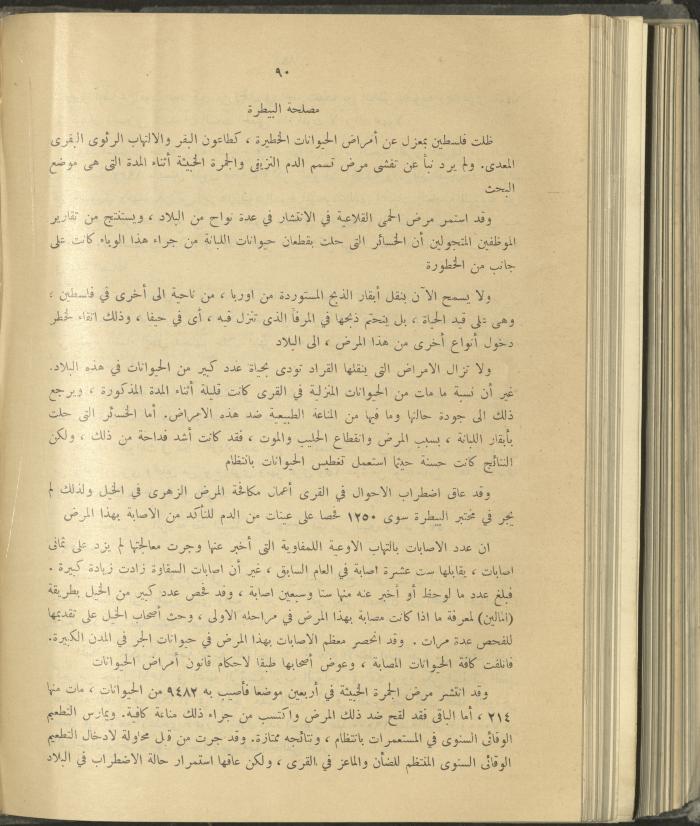 ٩٠
مصلحة البيطرة
ظلت فلسطين بمعزل عن أمراض الحيوانات الخطيرة ، كطاعون البقر والالتهاب الرئوى البقرى
المعدى. ولم يرد نبأ عن تفشى مرض تسمم الدم النزيفى والجمرة الخبيثة أثناء المدة التى هى موضع
البحث
وقد استمر مرض الحمى القلاعية في الانتشار في عدة نواح من البلاد ، ويستنتج من تقارير
الموظفين المتجولين أن الخسائر التى حلت بقطعان حيوانات اللبانة من جراء هذا الوباء كانت على
جانب من الخطورة
ولا يسمح الآن بنقل أبقار الذبح المستوردة من اوربا ، من ناحية الى أخرى في فلسطين ،
وهى على قيد الحياة ، بل يتحتم ذبحها في المرفأ الذى تنزل فيه ، أى في حيفا ، وذلك اتقاء لخطر
دخول أنواع أخرى من هذا المرض ، الى البلاد
ولا تزال الامراض التى ينقلها القراد تودى بحياة عدد كبير من الحيوانات في هذه البلاد.
غير أن نسبة ما مات من الحيوانات المنزلية في القرى كانت قليلة أثناء المدة المذكورة ، ويرجع
ذلك الى جودة حالتها وما فيها من المناعة الطبيعية ضد هذه الامراض. أما الخسائر التى حلت
بأبقار اللبانة ، بسبب المرض وانقطاع الحليب والموت ، فقد كانت أشد فداحة من ذلك ، ولكن
النتائج كانت حسنة حيثما استعمل تغطيس الحيوانات بانتظام
وقد عاق اضطراب الاحوال في القرى أعمال مكافحة المرض الزهرى في الخيل ولذلك لم
يجر في مختبر البيطرة سوى ١٢٥٠ فحصا على عينات من الدم للتأكد من الاصابة بهذا المرض
ان عدد الاصابات بالتهاب الاوعية اللمفاوية التى أخبر عنها وجرت معالجتها لم يزد على ثمانى
اصابات ، يقابلها ست عشرة اصابة في العام السابق ، غير أن اصابات السقاوة زادت زيادة كبيرة .
فبلغ عدد ما لوحظ أو أخبر عنه منها ستا وسبعين اصابة ، وقد فحص عدد كبير من الخيل بطريقة
(المالين) لمعرفة ما اذا كانت مصابة بهذا المرض في مراحله الاولى ، وحث أصحاب الخيل على تقديمها
للفحص عدة مرات . وقد انحصر معظم الاصابات بهذا المرض في حيوانات الجر في المدن الكبيرة.
فاتلفت كافة الحيوانات المصابة ، وعوض أصحابها طبقا لاحكام قانون أمراض الحيوانات
وقد انتشر مرض الجمرة الخبيثة في أربعين موضعا فأصيب به ٩٤٨٢ من الحيوانات ، مات منها
٢١٤ ، أما الباقى فقد لقح ضد ذلك المرض واكتسب من جراء ذلك مناعة كافية. ويمارس التطعيم
الوقائى السنوى في المستعمرات بانتظام ، ونتائجه ممتازة. وقد جرت من قبل محاولة لادخال التطعيم
الوقائى السنوى المنتظم للضأن والماعز في القرى ، ولكن عاقها استمرار حالة الاضطراب في البلاد